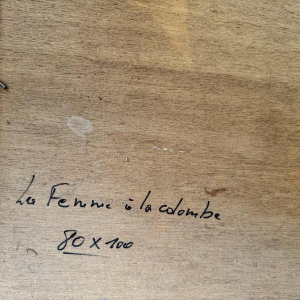 La Femme à la colombe
80 x 100